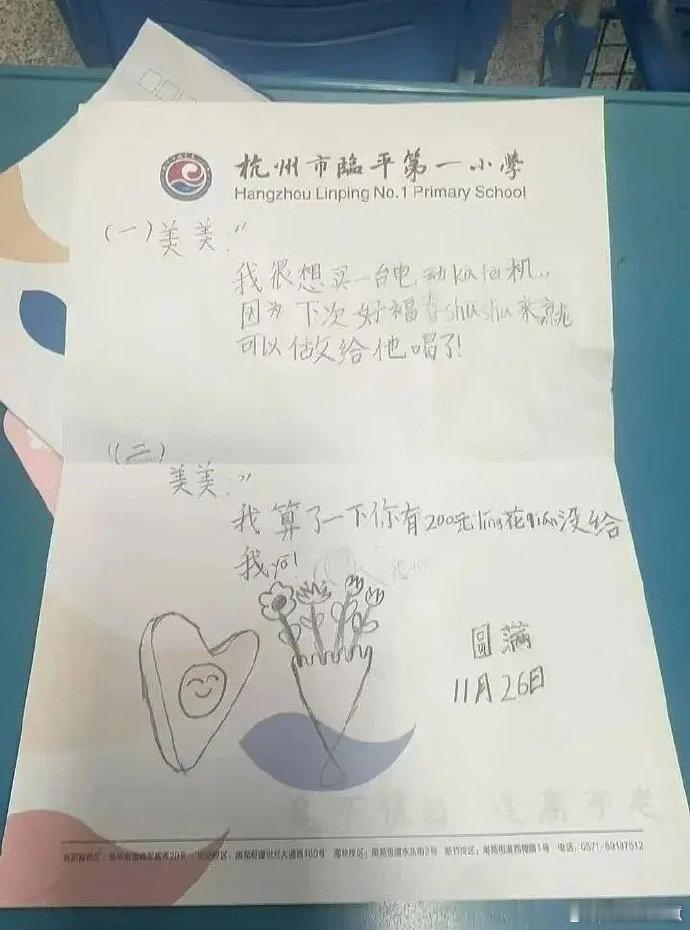 杭州市臨平第一小學
Hangzhou Linping No.1 Primary School
(一)美美:"
我很想买一台电动kafei机,,
因为下次好福气shushu来就
可以做给他喝了!
(二)
美美:"
我算了一下你有200元ling花qian没给
我yo!
圆滿
11月26日